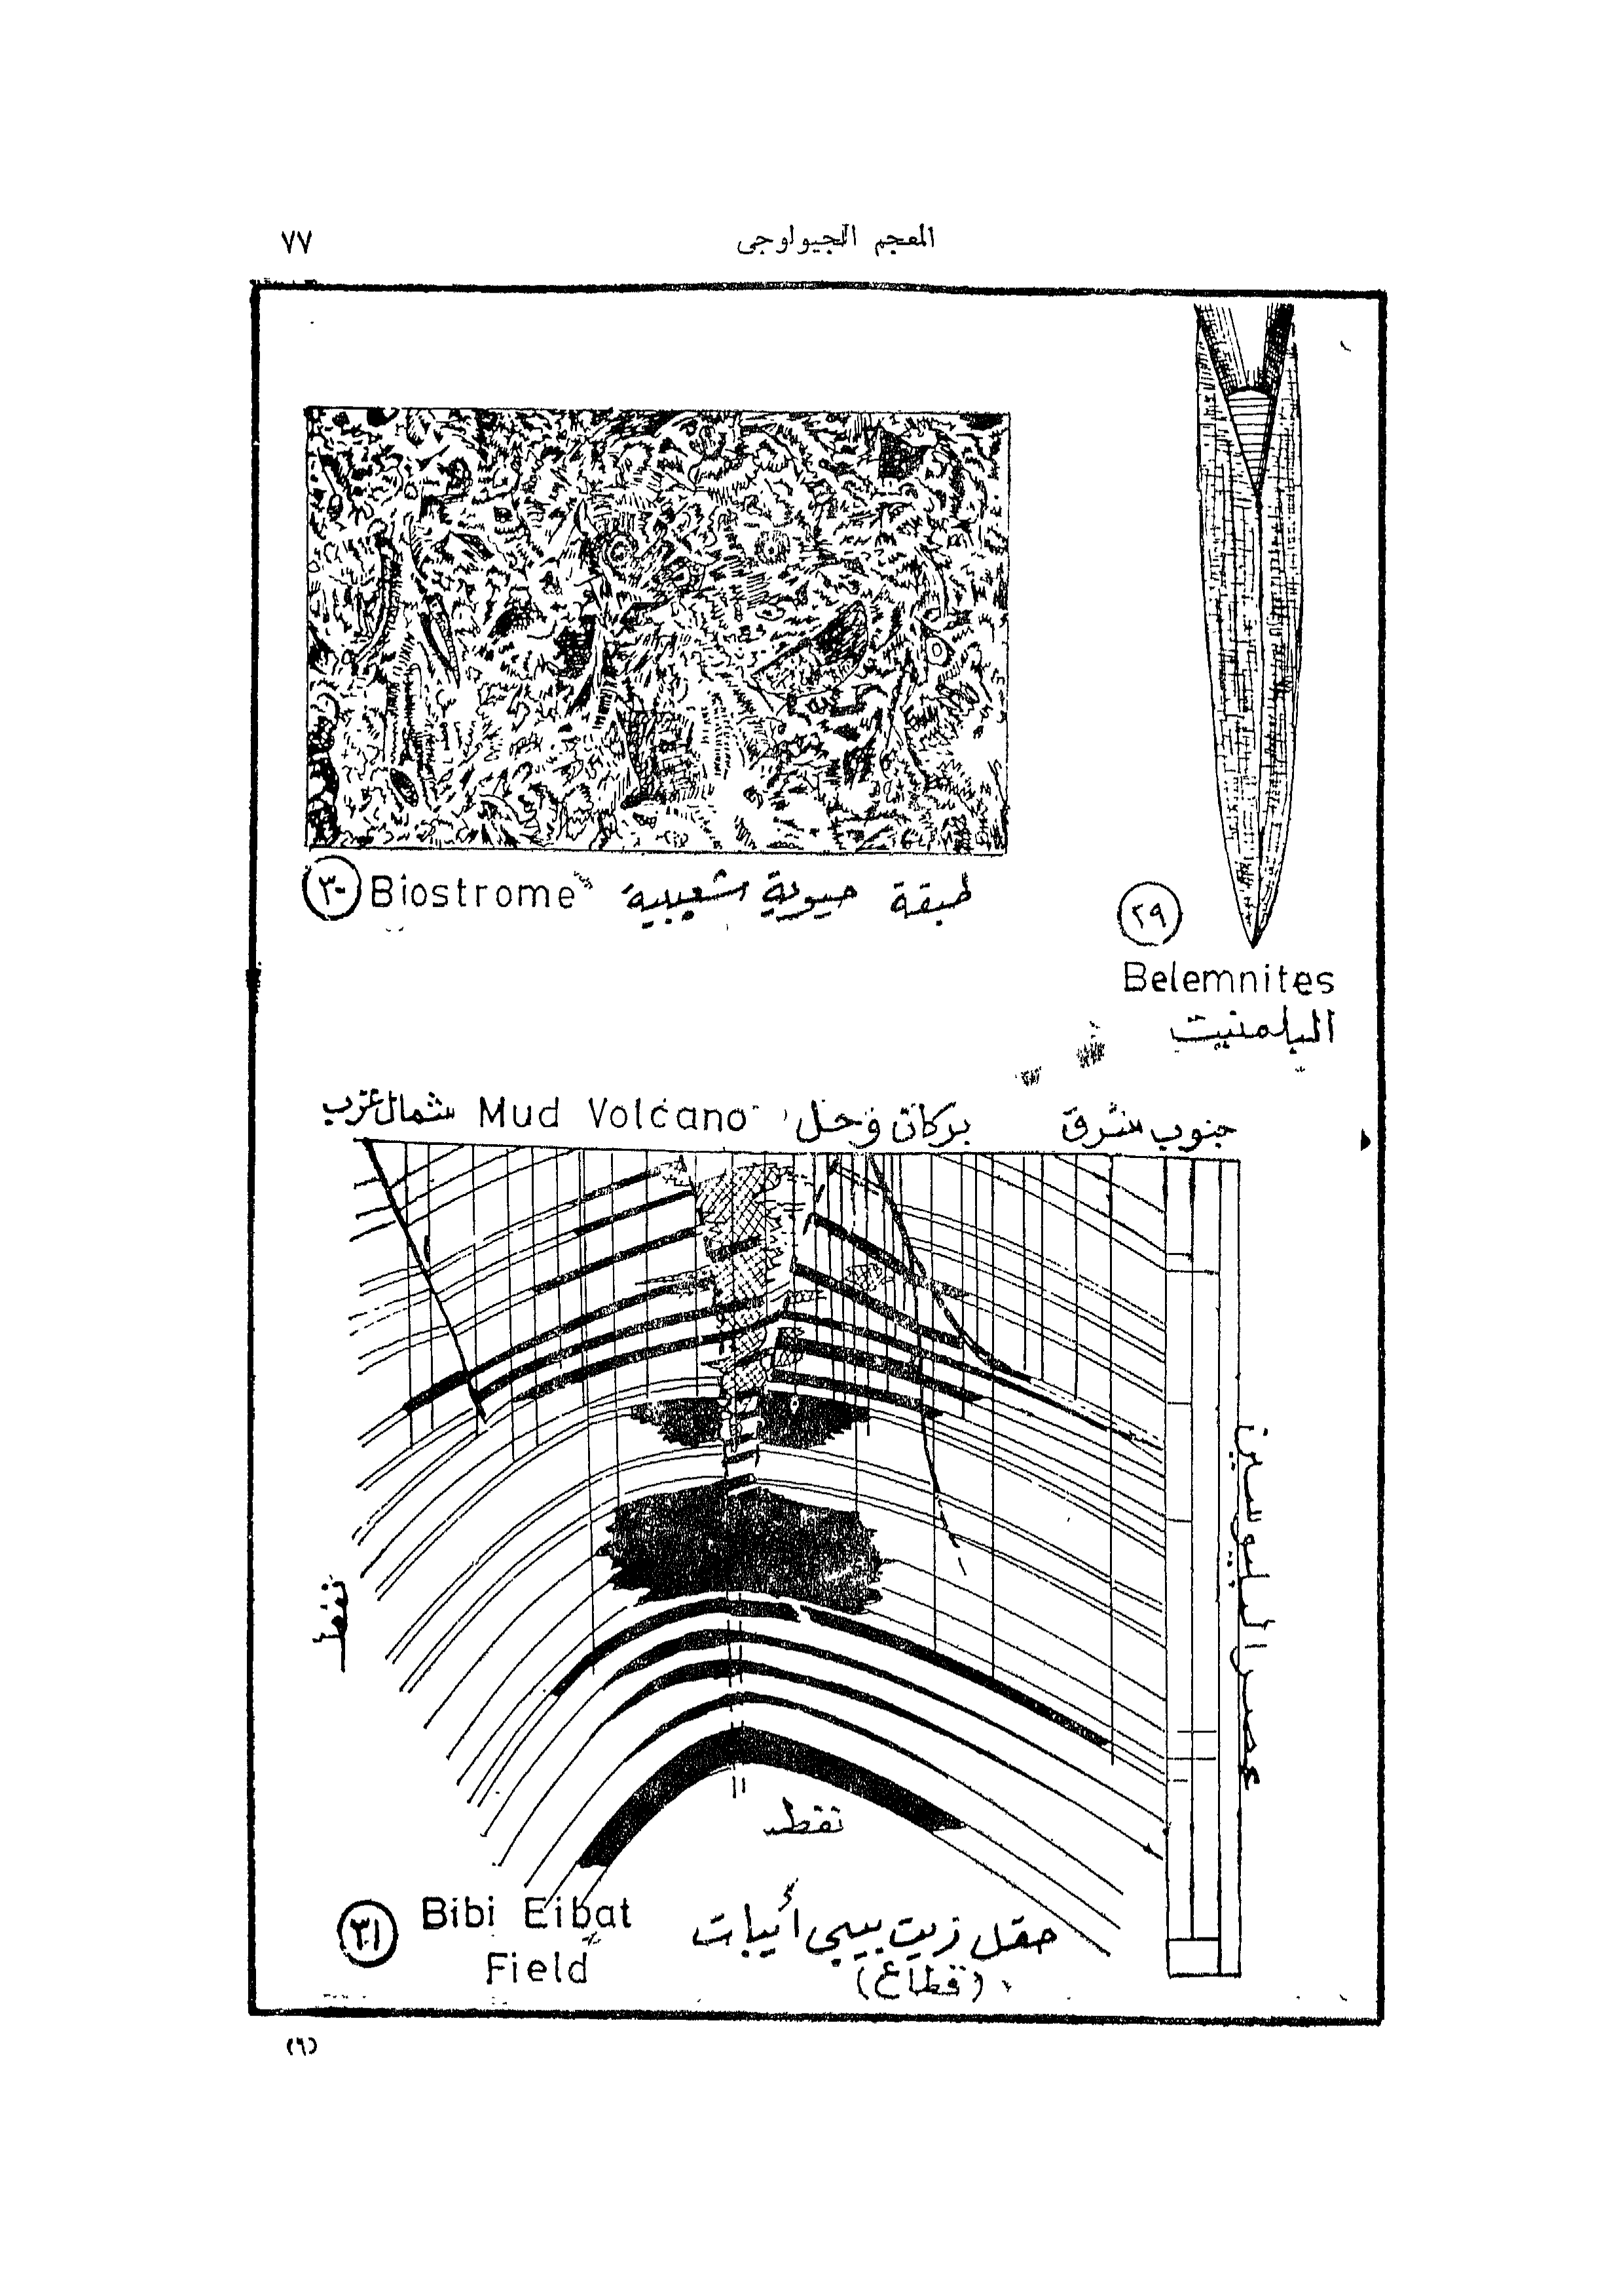 المعجم الجيولوجى
٧٧
٣٠ Biostrome طبقة حيوية شعيبية
٢٩
Belemnites
البلمنيت
شمال غرب Mud Volcano بركان وحل جنوب شرق
عصر البليوسين
نفط
نفط
٣١ Bibi Eibat حقل زيت بيبى أيبات
Field (قطاع)
(٦)